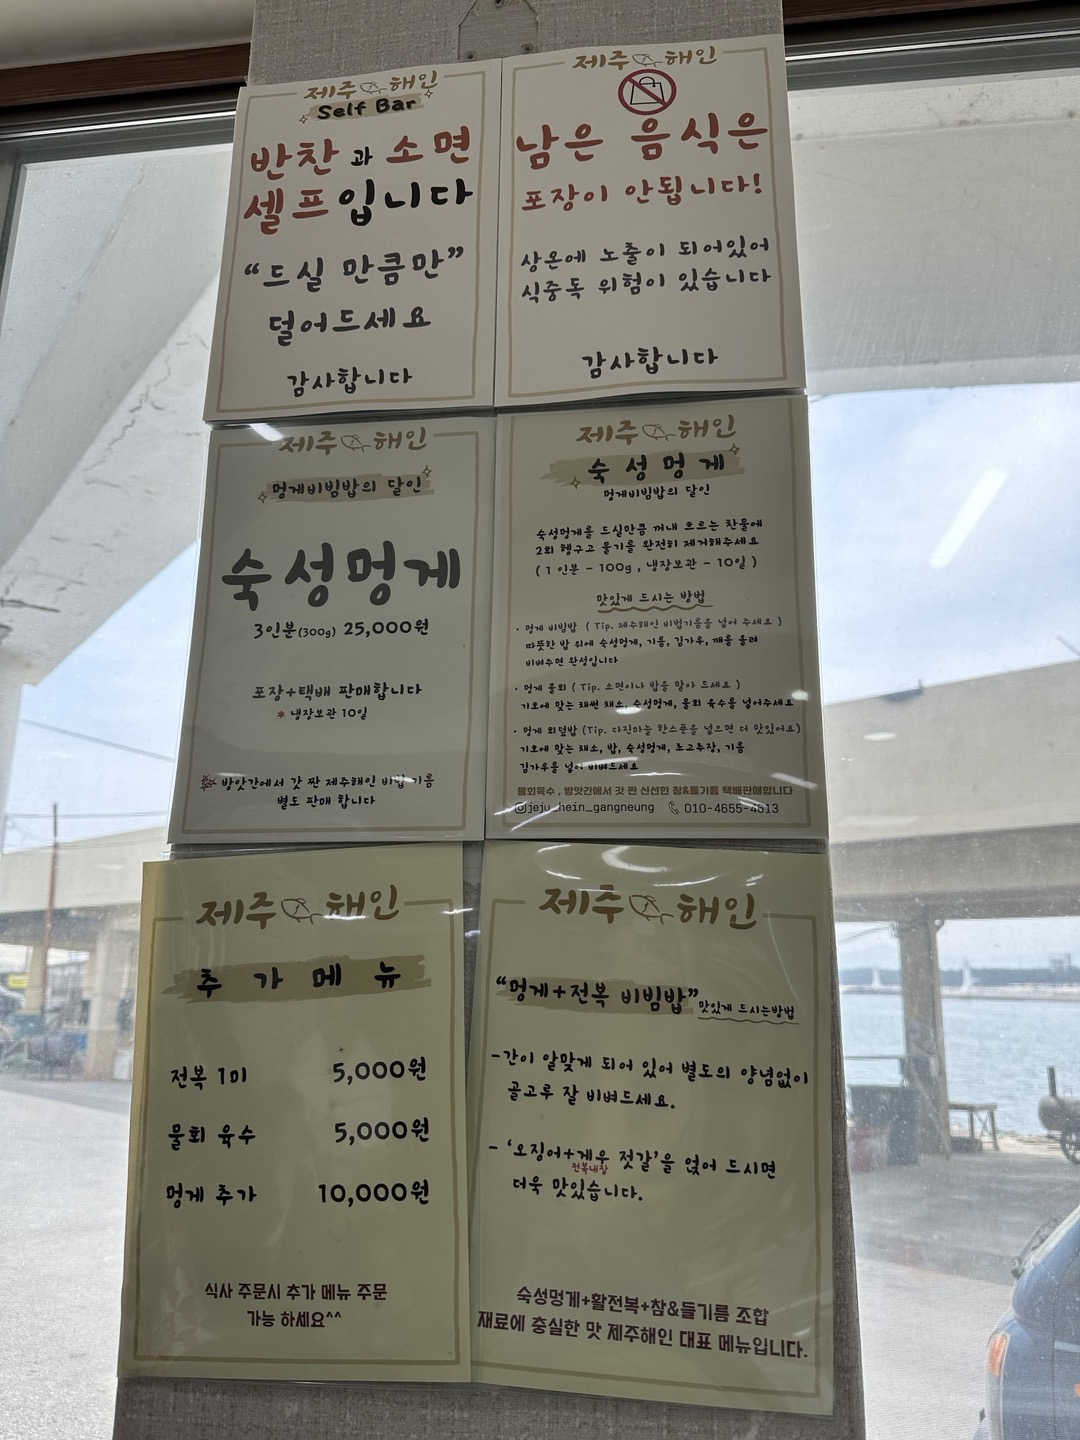 제주 해인
Self Bar
반찬과 소면
셀프입니다
“드실 만큼만”
덜어드세요
감사합니다
제주 해인
남은 음식은
포장이 안됩니다!
상온에 노출이 되어있어
식중독 위험이 있습니다
감사합니다
제주 해인
멍게비빔밥의 달인
숙성멍게
3인분(300g) 25,000원
포장+택배 판매합니다
* 냉장보관 10일
방앗간에서 갓 짠 제주해인 비법 기름
별도 판매 합니다
제주 해인
숙성멍게
멍게비빔밥의 달인
숙성멍게를 드실만큼 꺼내 흐르는 찬물에
2회 헹구고 물기를 완전히 제거해주세요
( 1 인분 - 100g , 냉장보관 - 10일 )
맛있게 드시는 방법
· 멍게 비빔밥 ( Tip. 제주해인 비법기름을 넣어 주세요 )
따뜻한 밥 위에 숙성멍게, 기름, 김가루, 깨를 올려
비벼주면 완성입니다
· 멍게 물회 ( Tip. 소면이나 밥을 말아 드세요 )
기호에 맞는 채썬 채소, 숙성멍게, 물회 육수를 넣어주세요
· 멍게 회덮밥 (Tip. 다진마늘 한스푼을 넣으면 더 맛있어요)
기호에 맞는 채소, 밥, 숙성멍게, 초고추장, 기름
김가루를 넣어 비벼드세요
물회육수 , 방앗간에서 갓 짠 신선한 참&들기름 택배판매합니다
@jeju_hein_gangneung 010-4655-4813
제주 해인
추가메뉴
전복 1미 5,000원
물회 육수 5,000원
멍게 추가 10,000원
식사 주문시 추가 메뉴 주문
가능 하세요^^
제주 해인
“멍게+전복 비빔밥” 맛있게 드시는방법
-간이 알맞게 되어 있어 별도의 양념없이
골고루 잘 비벼드세요.
- ‘오징어+게우 젓갈’을 얹어 드시면
전복내장
더욱 맛있습니다.
숙성멍게+활전복+참&들기름 조합
재료에 충실한 맛 제주해인 대표 메뉴입니다.